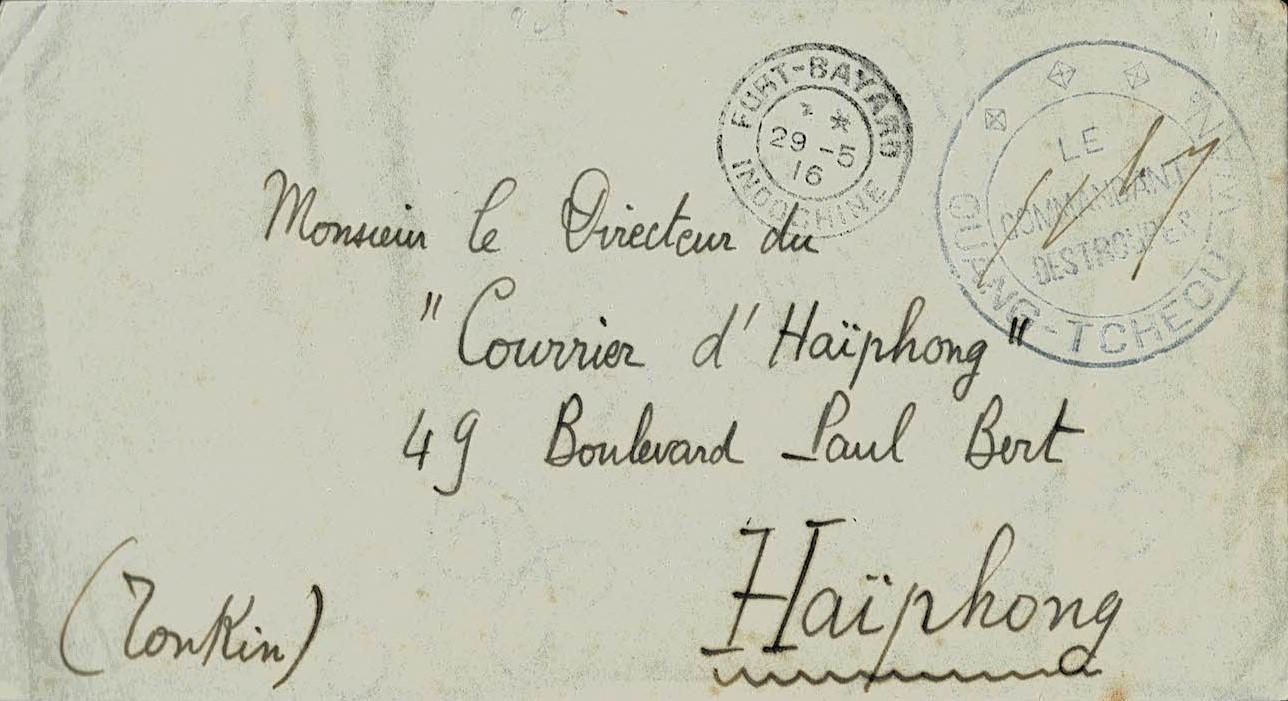 FORT-BAYARD
* *
29 -5
16
INDOCHINE
LE
COMMANDANT
DES TROUPES
QUANG-TCHEOU-WAN
Monsieur le Directeur du
"Courrier d'Haïphong"
49 Boulevard Paul Bert
Haïphong
(Tonkin)